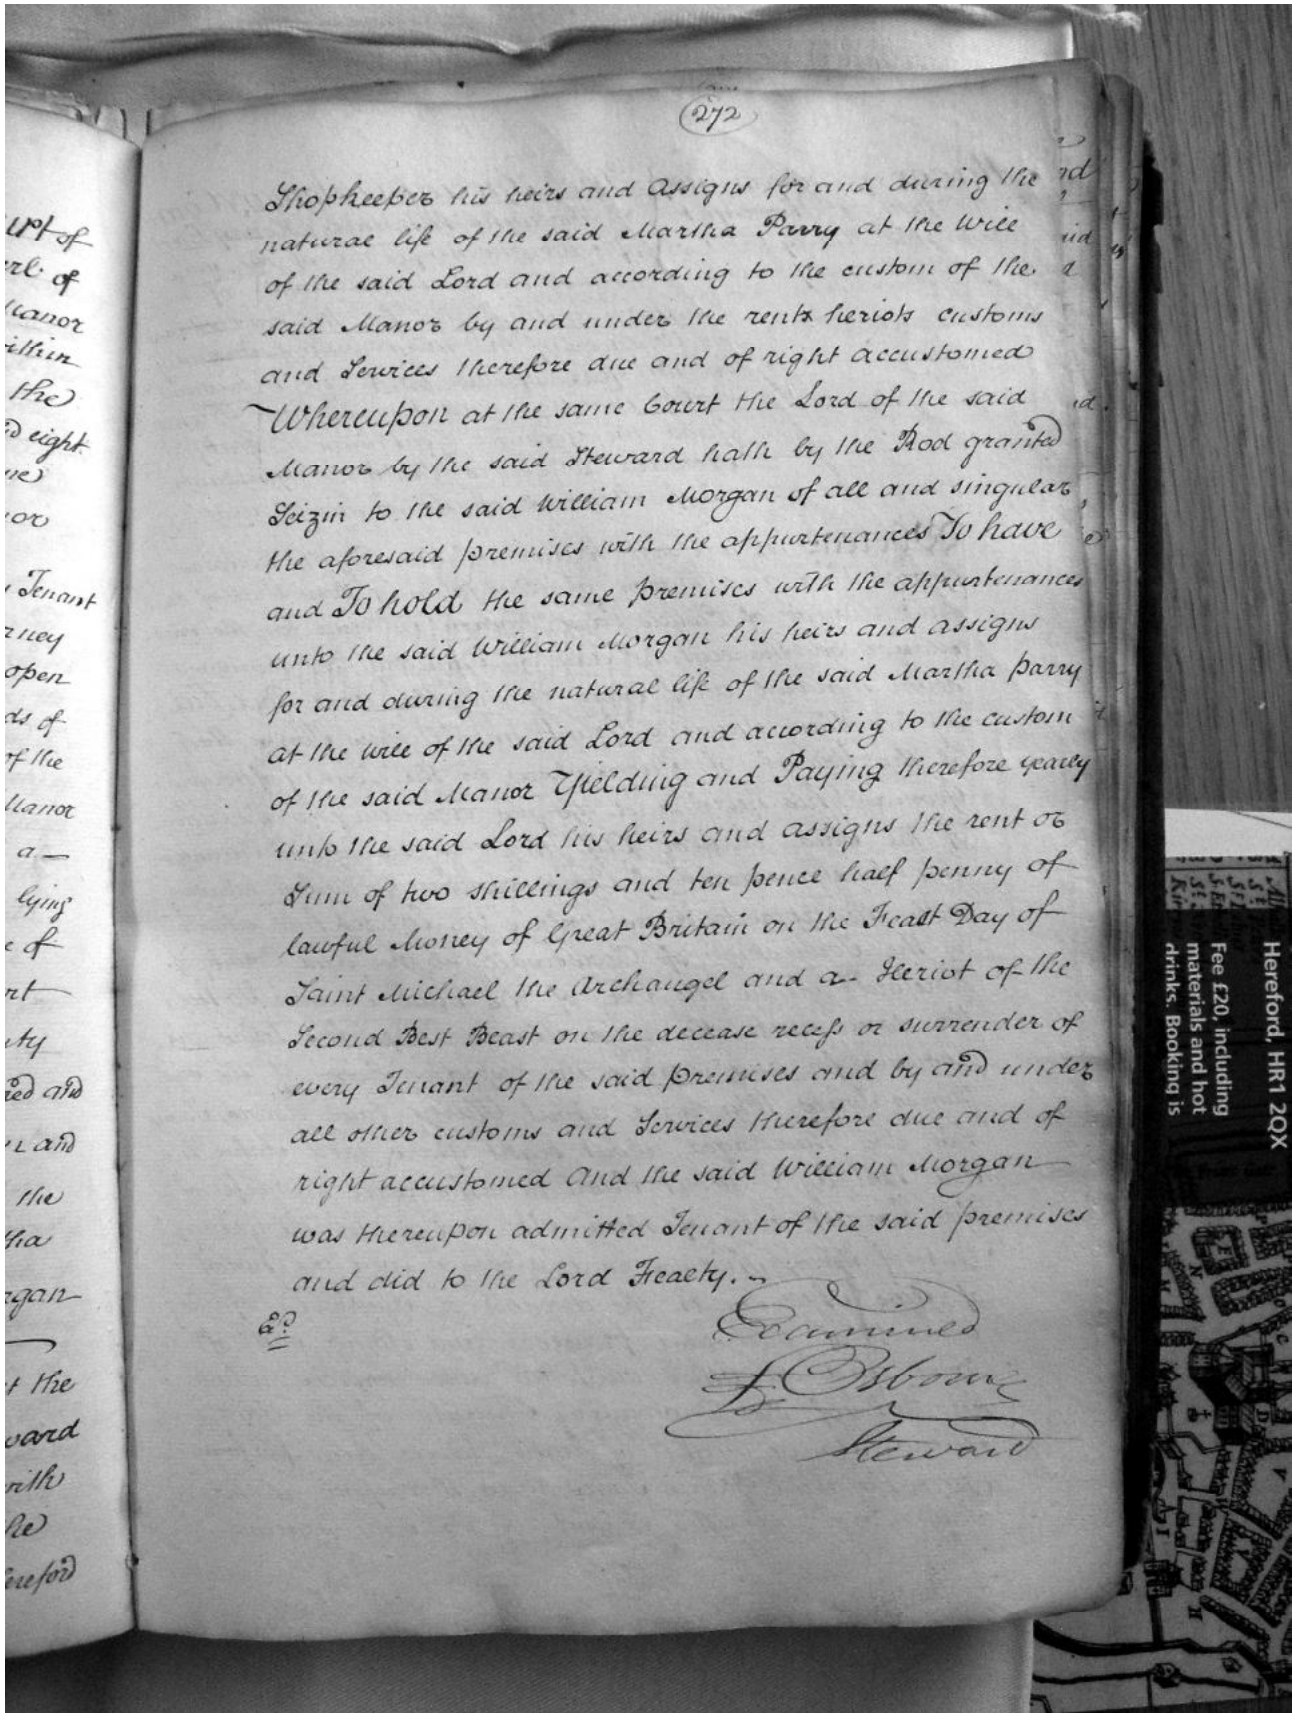 272
Shopkeeper his heirs and Assigns for and during the
natural life of the said Martha Parry at the Will
of the said Lord and according to the custom of the
said Manor by and under the rents heriots customs
and Services therefore due and of right accustomed
Whereupon at the same Court the Lord of the said
Manor by the said Steward hath by the Rod granted
Seizin to the said William Morgan of all and singular
the aforesaid premises with the appurtenances To have
and To hold the same premises with the appurtenances
unto the said William Morgan his heirs and assigns
for and during the natural life of the said Martha parry
at the will of the said Lord and according to the custom
of the said Manor Yielding and Paying therefore yearly
unto the said Lord his heirs and assigns the rent or
Sum of two shillings and ten pence half penny of
lawful Money of Great Britain on the Feast Day of
Saint Michael the Archangel and a Heriot of the
Second Best Beast on the decease recess or surrender of
every Tenant of the said Premises and by and under
all other customs and Services therefore due and of
right accustomed And the said William Morgan
was thereupon admitted Tenant of the said premises
and did to the Lord Fealty.
Ed
Examined
Osborne
Steward
of
of
Manor
the
eight
Tenant
open
of
of the
Manor
a
lying
of
and
and
the
the
Hereford, HR1 2QX
Fee £20, including
materials and hot
drinks. Booking is